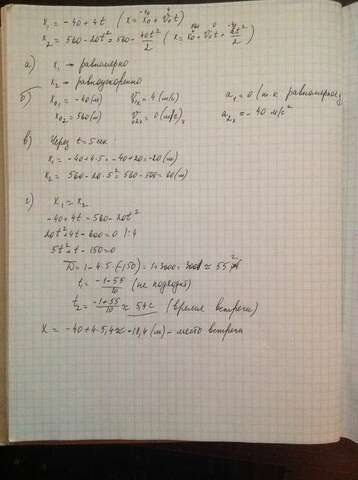 x₁ = -40 + 4t ( x = x₀ + v₀t )
-40 4
x₂ = 560 - 20t² = 560 - 40t²/2 ( x = x₀ + v₀t + at²/2 )
560 0 -40
а) x₁ → равномерно
x₂ → равноускоренно
б) x₀₁ = -40 (м) v₁ₓ = 4 (м/с) a₁ = 0 (т.к. равномерное)
x₀₂ = 560 (м) v₀₂ₓ = 0 (м/с) a₂ₓ = -40 м/с²
в) Через t = 5 сек:
x₁ = -40 + 4·5 = -40 + 20 = -20 (м)
x₂ = 560 - 20·5² = 560 - 500 = 60 (м)
г) x₁ = x₂
-40 + 4t = 560 - 20t²
20t² + 4t - 600 = 0 |:4
5t² + t - 150 = 0
D = 1 - 4·5·(-150) = 1 + 3000 = 3001 ≈ 55²
t₁ = (-1-55)/10 (не подходит)
t₂ = (-1+55)/10 ≈ 5,4с (время встречи)
X = -40 + 4·5,4 ≈ -18,4 (м) - место встречи